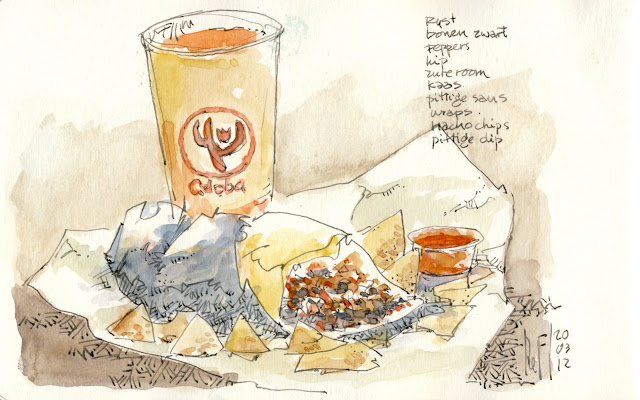 Qdoba
rijst
bonen zwart
peppers
kip
zure room
kaas
pittige saus
wraps.
nachochips
pittige dip
20
03
12